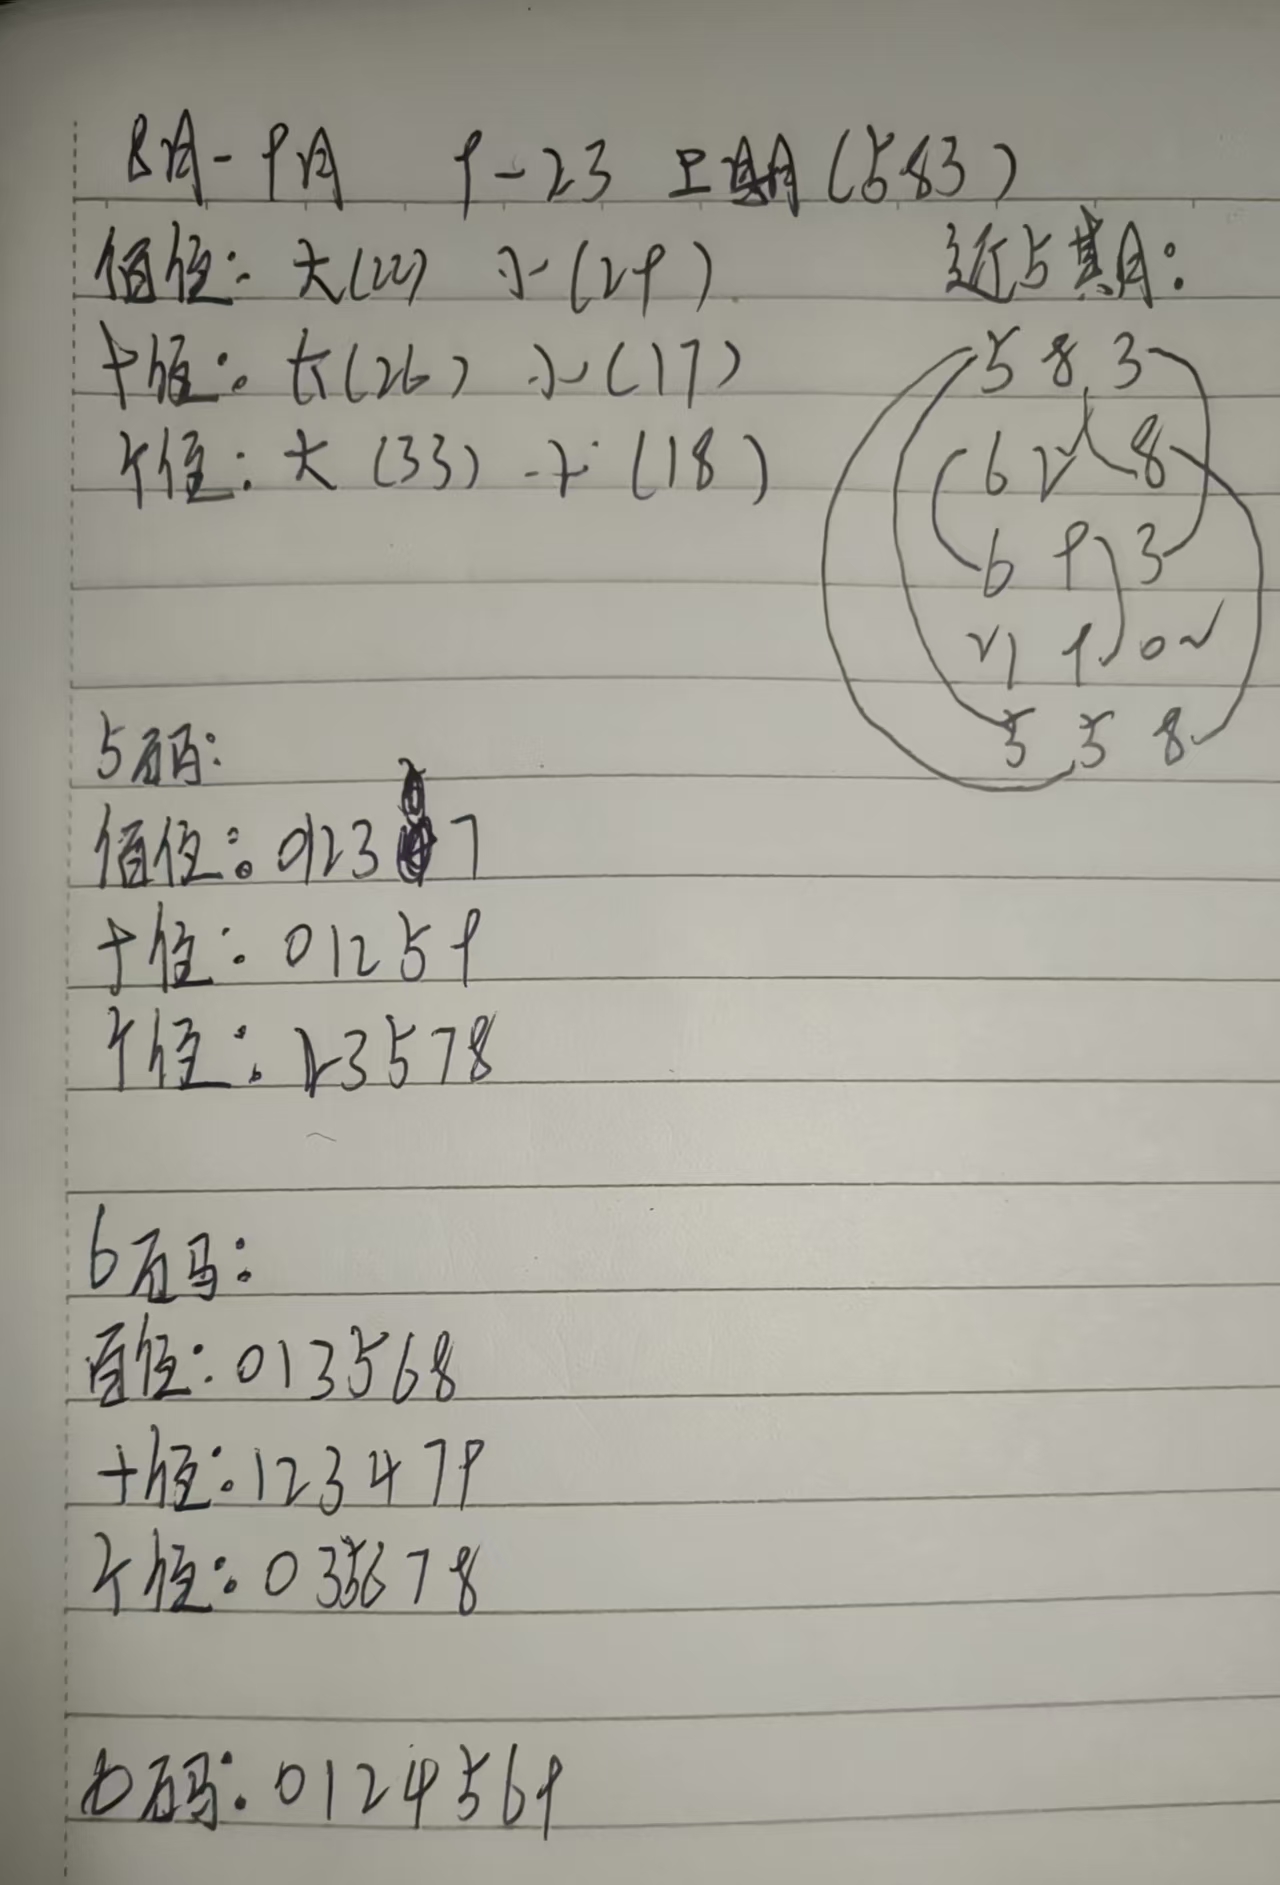 8月-9月 9-23 上期(583)
佰位: 大(22) 小(29)
近5期:
十位: 大(26) 小(17)
个位: 大(33) 小(18)
583
628
693
2190
558
5码:
佰位: 0123 7
十位: 01259
个位: 23578
6码:
百位: 013568
十位: 123479
个位: 035678
码: 0124569